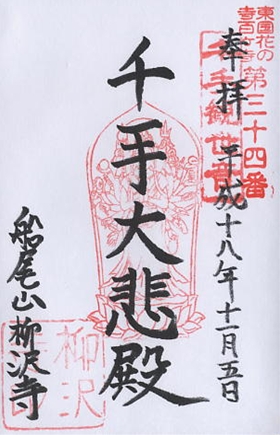 東国花の
寺百ヶ寺
第三十四番
奉拝 平成十八年十一月五日
千手観世音
千手大悲殿
船尾山柳沢寺
柳沢